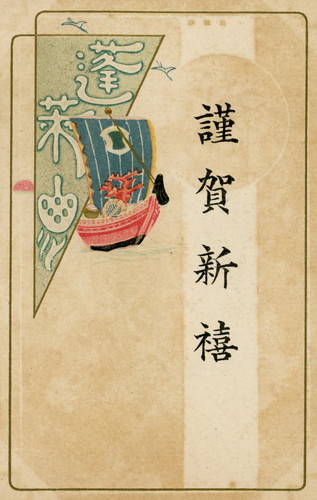 謹賀新禧
蓬萊山